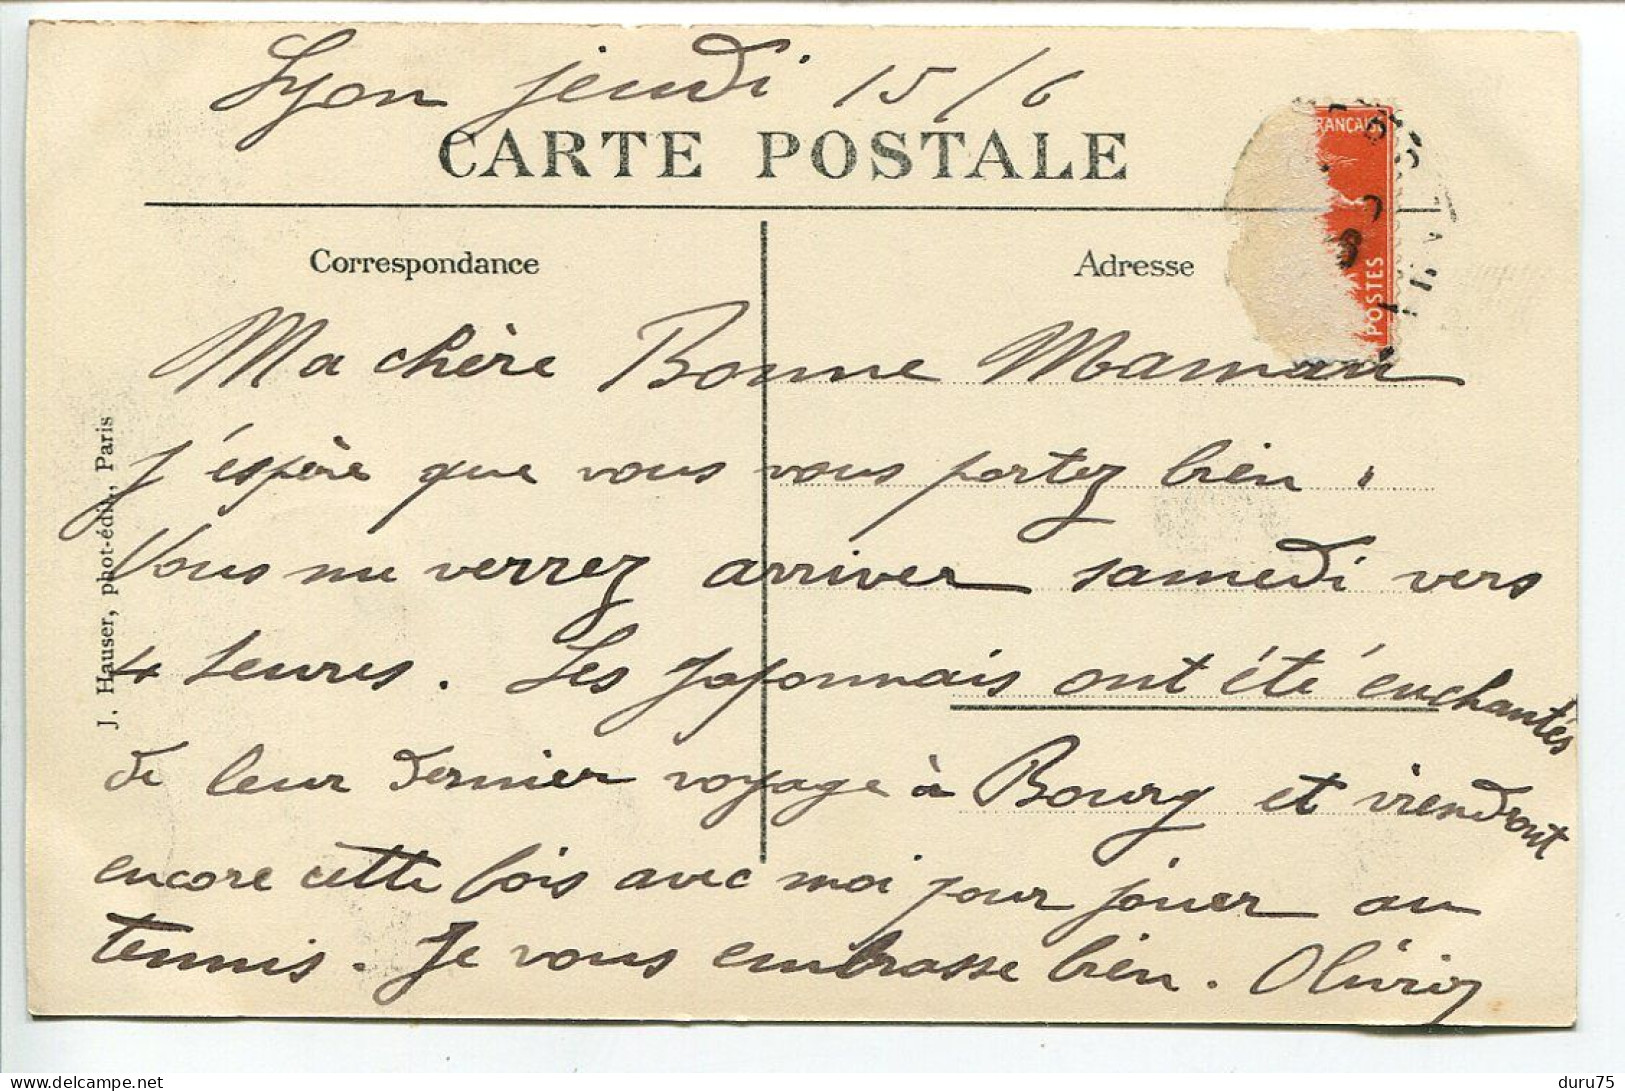 Lyon jeudi 15/6
CARTE POSTALE
RANCAIS
POSTES
Correspondance
Adresse
Ma chère Bonne Maman
J'éspère que vous vous portez bien.
Vous me verrez arriver samedi vers
4 heures. Les Japonnais ont été enchantés
de leur dernier voyage à Bourg et viendront
encore cette fois avec moi pour jouer au
tennis. Je vous embrasse bien. Olivier
J. Hauser, phot-édit., Paris
delcampe.net
duru75